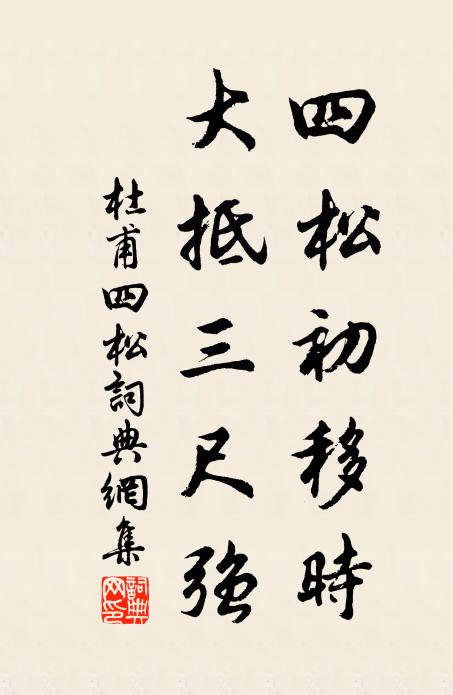 四松初移時
大抵三尺強
杜甫四松詞典網集
詞典網印